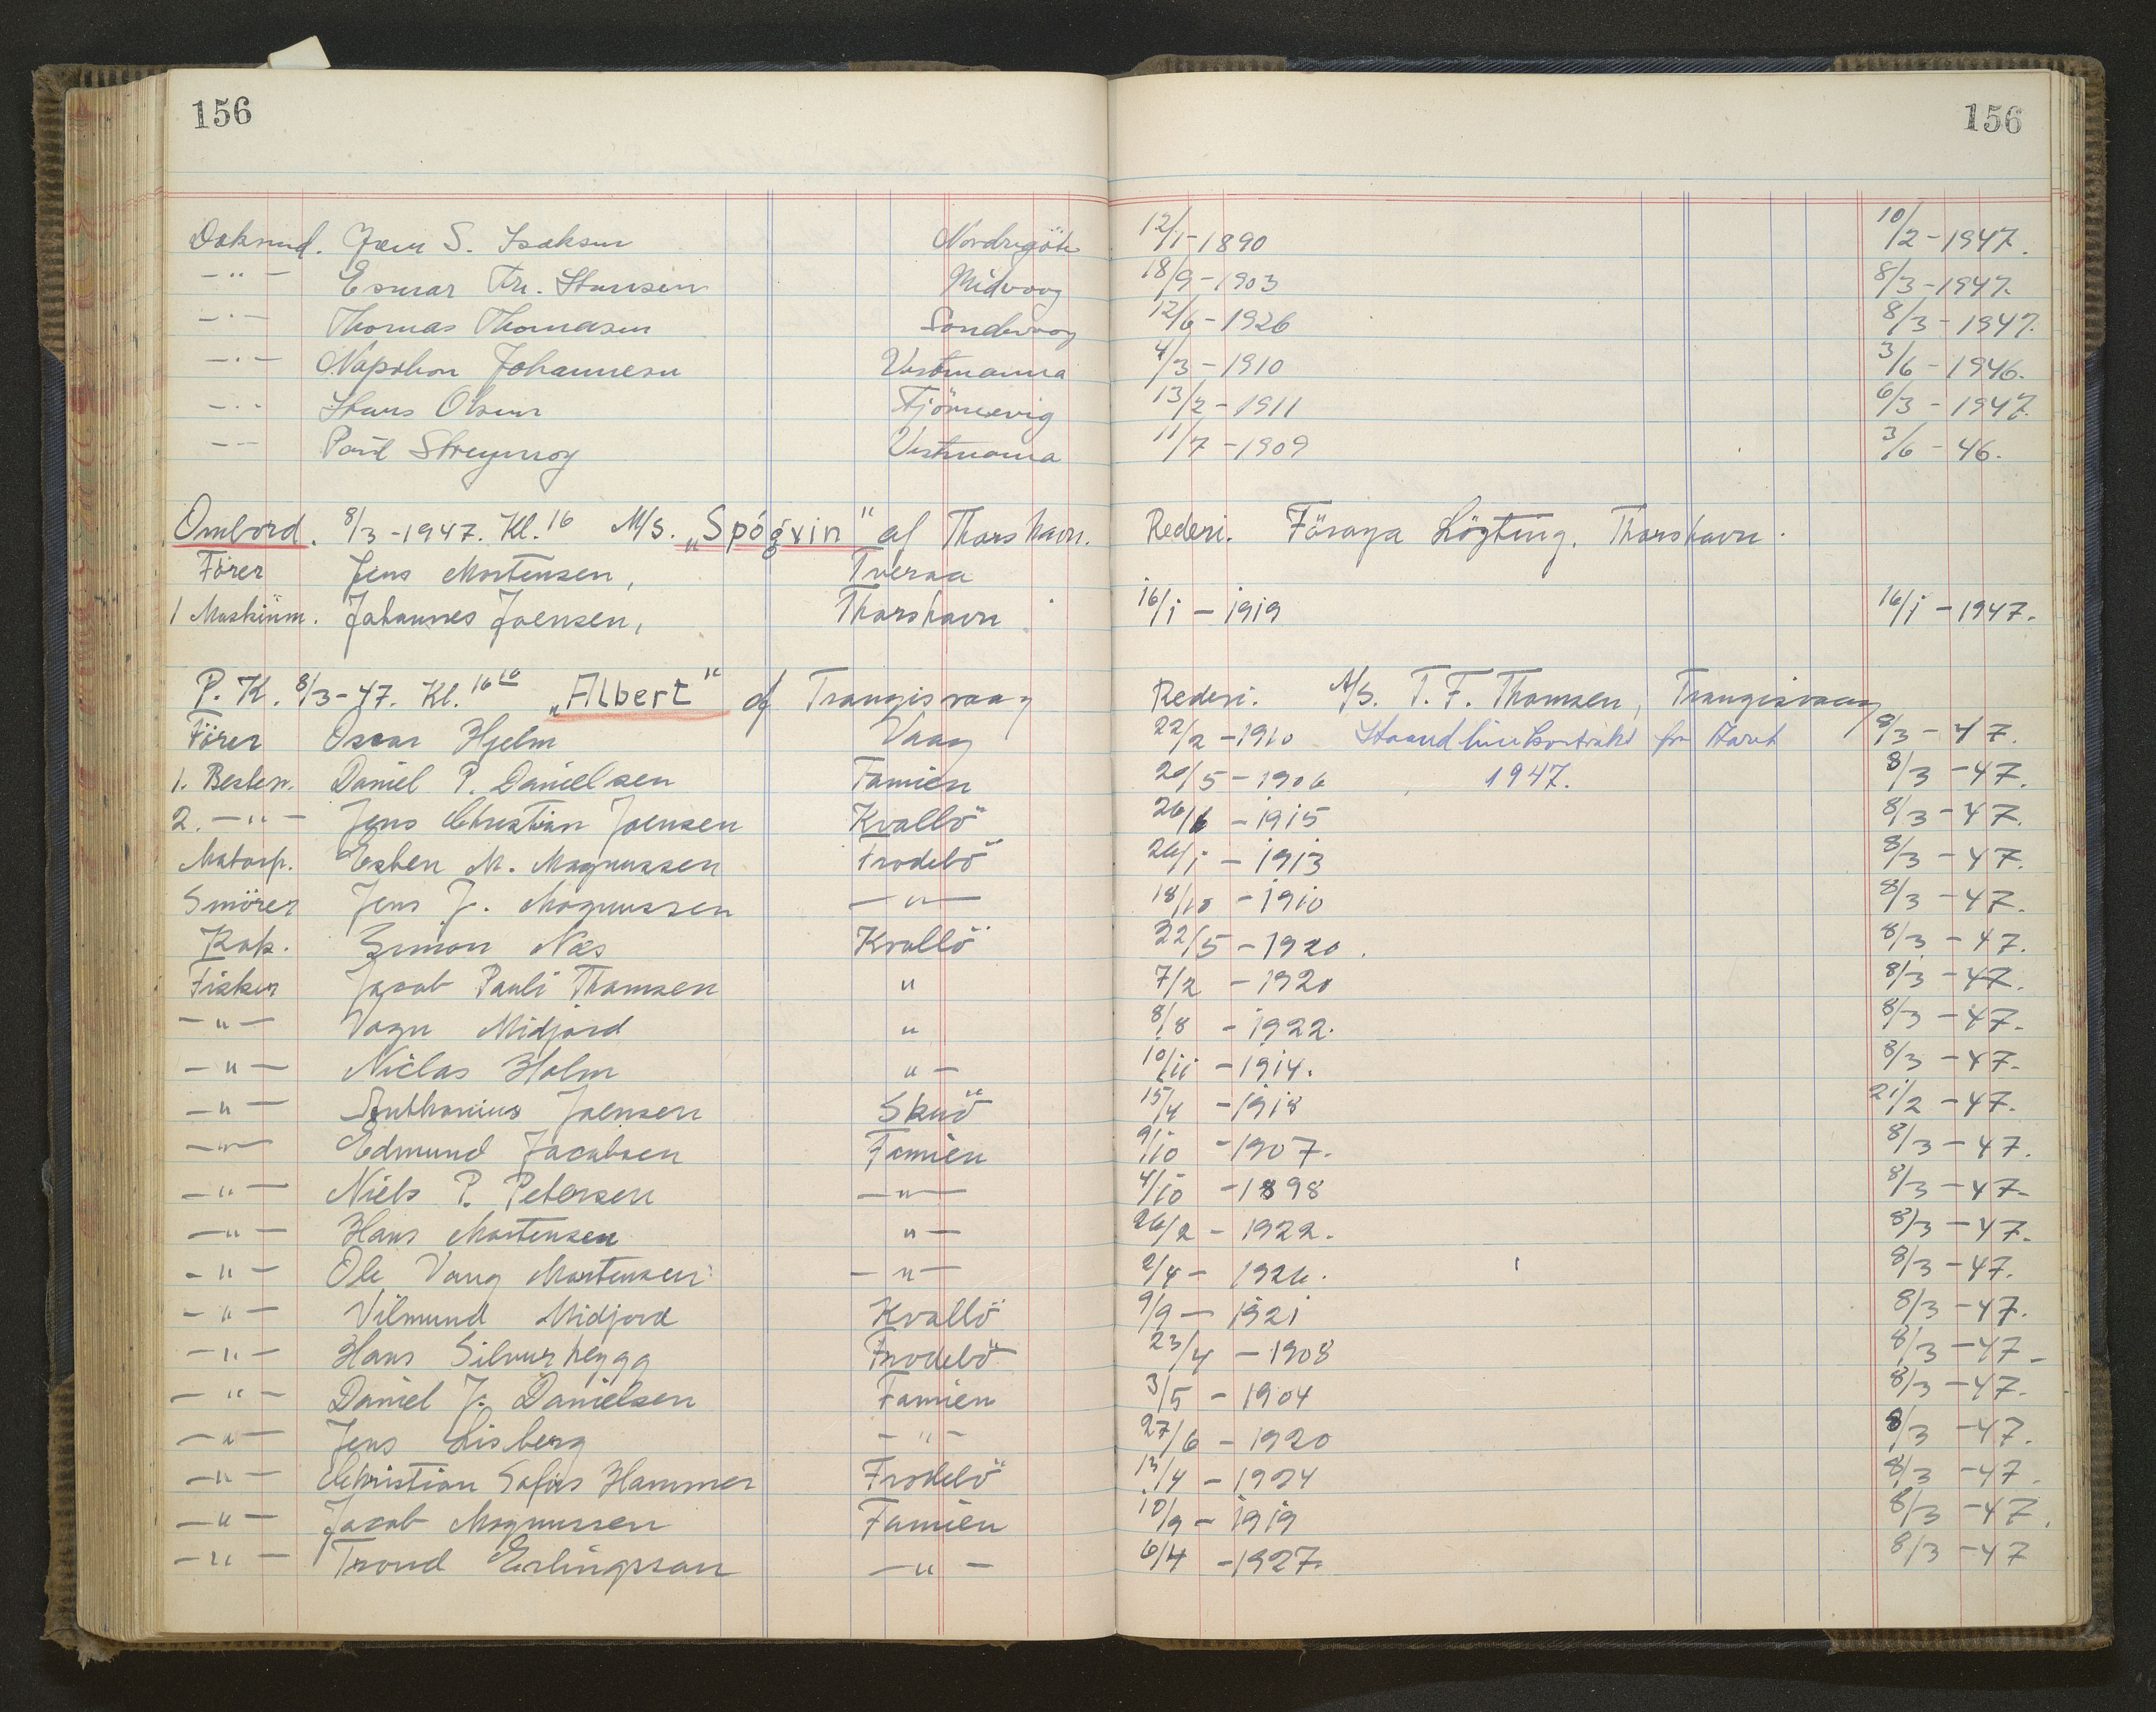 156 156
Daksmd. Joen S. Isaksen Nordregöte 12/1-1890 10/2-1947.
-"- Esmar Fr. Hansen Midvaag 18/9-1903 8/3-1947.
-"- Thomas Thomasen Sandevaag 12/6-1926 8/3-1947.
-"- Napolion Johannesen Vestmanna 4/3-1910 3/6-1946.
-"- Hans Olsen Tjörnevig 13/2-1911 6/3-1947.
-"- Poul Streymoy Vestmanna 11/7-1909 3/6-46.
Ombord. 8/3-1947. Kl. 16 M/S. „Spógvin" af Thorshavn. Rederi. Föroya Lögting. Thorshavn.
Förer Jens Mortensen, Tveraa
1 Maskinm. Johannes Joensen, Thorshavn 16/1-1919 16/1-1947.
P. K. 8/3-47. Kl. 16 10 „Albert" af Trangisvaag Rederi. A/S. T. F. Thomsen, Trangisvaag
Förer Oscar Hjelm Vaag 22/2-1910 Haandlinekontrakt for Aaret 8/3-47.
1. Bestm. Daniel P. Danielsen Famien 20/5-1906 1947. 8/3-47.
2. -"- Jens Christian Joensen Kvalbö 26/6-1915 8/3-47.
Motorp. Esben M. Magnussen Frodebö 26/1-1913 8/3-47.
Smörer Jens J. Magnussen -"- 18/10-1910 8/3-47.
Kok. Simon Næs Kvalbö 22/5-1920. 8/3-47.
Fisker Jacob Pauli Thomsen " 7/2-1920 8/3-47.
-"- Vagn Midjord " 8/8-1922. 8/3-47.
-"- Niclas Holm "- 10/11-1914. 8/3-47.
-"- Anthonius Joensen Skuö 15/4-1918 21/2-47.
-"- Edmund Jacobsen Famien 9/10-1907. 8/3-47.
-"- Niels P. Petersen -"- 4/10-1898 8/3-47.
-"- Hans Mortensen "- 26/2-1922. 8/3-47.
-"- Ole Vang Mortensen -"- 2/4-1926. 8/3-47.
-"- Vilmund Midjord Kvalbö 9/9-1921 8/3-47.
-"- Hans Silvurhegg Frodebö 23/4-1908 8/3-47-
-"- Daniel J. Danielsen Famien 3/5-1904 8/3-47.
-"- Jens Lisberg -"- 27/6-1920 8/3-47.
-"- Christian Hammer Frodebö 8/3-47.
-"- Jacob Magnussen Famien 10/9-1919 8/3-47.
-"- Trond Erlingsson -"- 6/4-1927. 8/3-47